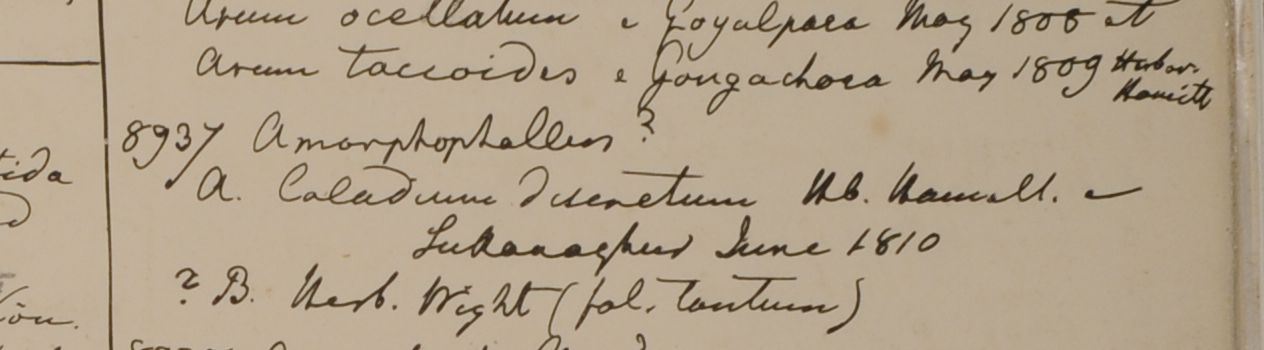 Arum ocellatum e Goyalpara May 1808 et
Arum taccoides e Gongachora May 1809 Herb.
Hamilt
tida
8937 Amorphophallus?
A. Caladium discretum Hb. Hamilt. e
June 1810
? B. Herb. Wight (fol. tantum)